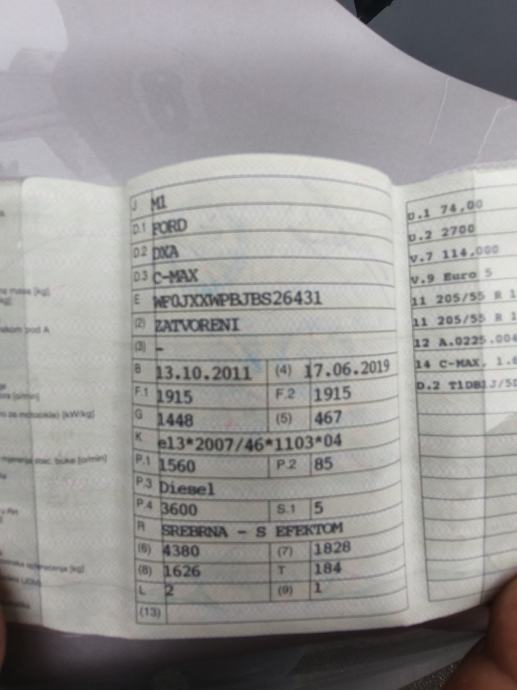 J M1
D.1 FORD
D.2 DXA
D.3 C-MAX
E WF0JXXWPBJBS26431
(2) ZATVORENI
(3) -
B 13.10.2011 (4) 17.06.2019
F.1 1915 F.2 1915
G 1448 (5) 467
K e13*2007/46*1103*04
P.1 1560 P.2 85
P.3 Diesel
P.4 3600 S.1 5
R SREBRNA - S EFEKTOM
(6) 4380 (7) 1828
(8) 1626 T 184
L 2 (9) 1
(13)
U.1 74,00
U.2 2700
V.7 114,000
V.9 Euro 5
11 205/55 R 1
11 205/55 R 1
12 A.0225.004
14 C-MAX, 1.6
D.2 T1DB1J/5D
na masa [kg]
kg]
pod A
[o/min]
za motocikle) [kW/kg]
buke [o/min]
[kg]